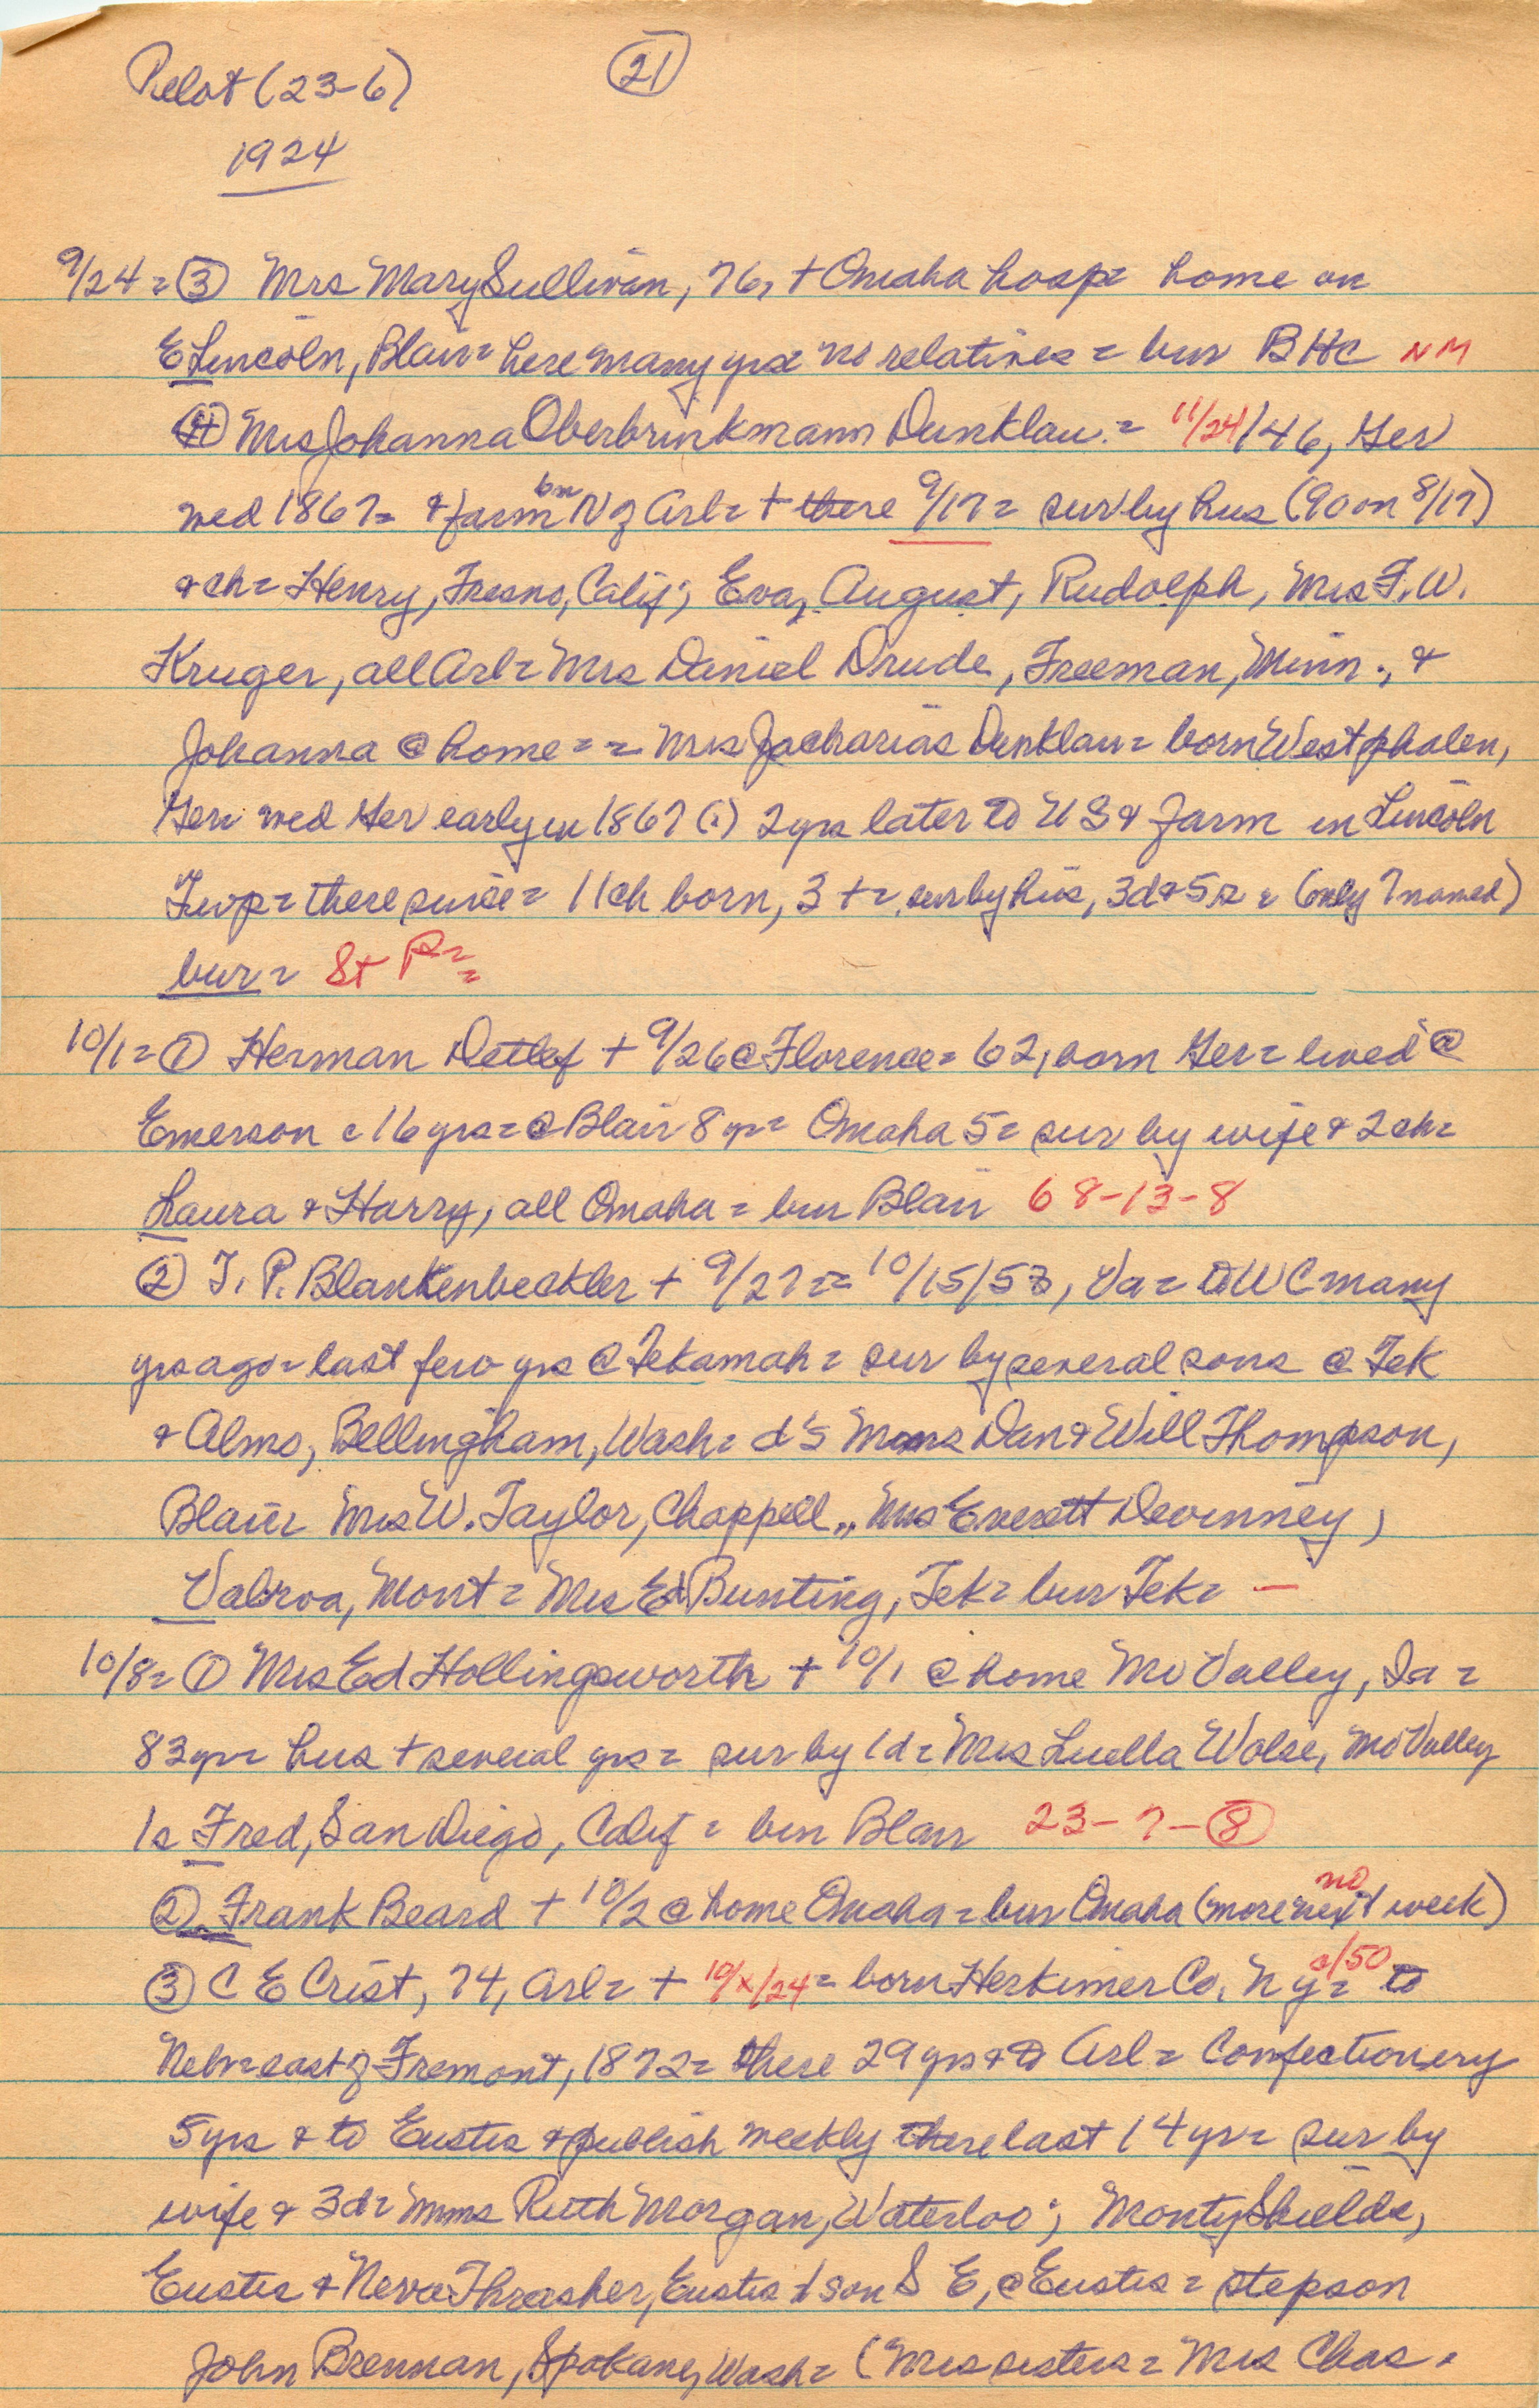 Pilot (23-6) 21
1924
9/24 = 3 Mrs Mary Sullivan, 76, + Omaha hosp = home on
E Lincoln, Blair = here many yrs = no relatives = bur BHC NM
4 Mrs Johanna Oberbrinkmann Dunklau = 11/24/46, Ger
wed 1867 = & farm N of Arl = + there 9/17 = sur by hus (90 on 8/17)
& ch = Henry, Fresno, Calif; Eva, August, Rudolph, Mrs F. W.
Kruger, all Arl = Mrs Daniel Drude, Freeman, Minn., &
Johanna @ home = = Mrs Zacharias Dunklau = born Westphalen,
Ger wed Ger early in 1867 (?) 2 yrs later to US & farm in Lincoln
Twp = there since = 11 ch born, 3 + = sur by hus, 3d & 5s = (only 7 named)
bur = St P =
10/1 = 1 Herman Detlef + 9/26 @ Florence = 62, born Ger = lived @
Emerson = 16 yrs = @ Blair 8 yr = Omaha 5 = sur by wife & 2 ch =
Laura & Harry, all Omaha = bur Blair 68-13-8
2 T. P. Blankenbeckler + 9/27 = = 10/15/53, Va = to WC many
yrs ago = last few yrs @ Tekamah = sur by several sons @ Tek
& Alms, Bellingham, Wash = d's Mmes Dan & Will Thompson,
Blair = Mrs W. Taylor, Chappell,, Mrs Everett Devinney,
Mont = Mrs Ed Bunting, Tek = bur Tek = —
10/8 = 1 Mrs Ed Hollingsworth + 10/1 @ home Mo Valley, Ia =
83 yr = hus + several yrs = sur by 1d = Mrs Luella Wolse, Mo Valley
1s Fred, San Diego, Calif = bur Blair 23-7-8
2 Frank Beard + 10/2 @ home Omaha = bur Omaha (more next week) no
3 C E Crist, 74, Arl = + 10/x/24 = born Herkimer Co, NY = c/50 to
Neb = east of Fremont, 1872 = there 29 yrs & to Arl = Confectionery
5 yrs & to Eustis & publish weekly there last 14 yr = sur by
wife & 3d = Mmes Ruth Morgan, Waterloo; Monty Shields,
Eustis & Neva Thrasher, Eustis 1 son S E, @ Eustis = stepson
John Brennan, Spokane, Wash = (Mrs sisters = Mrs Chas.